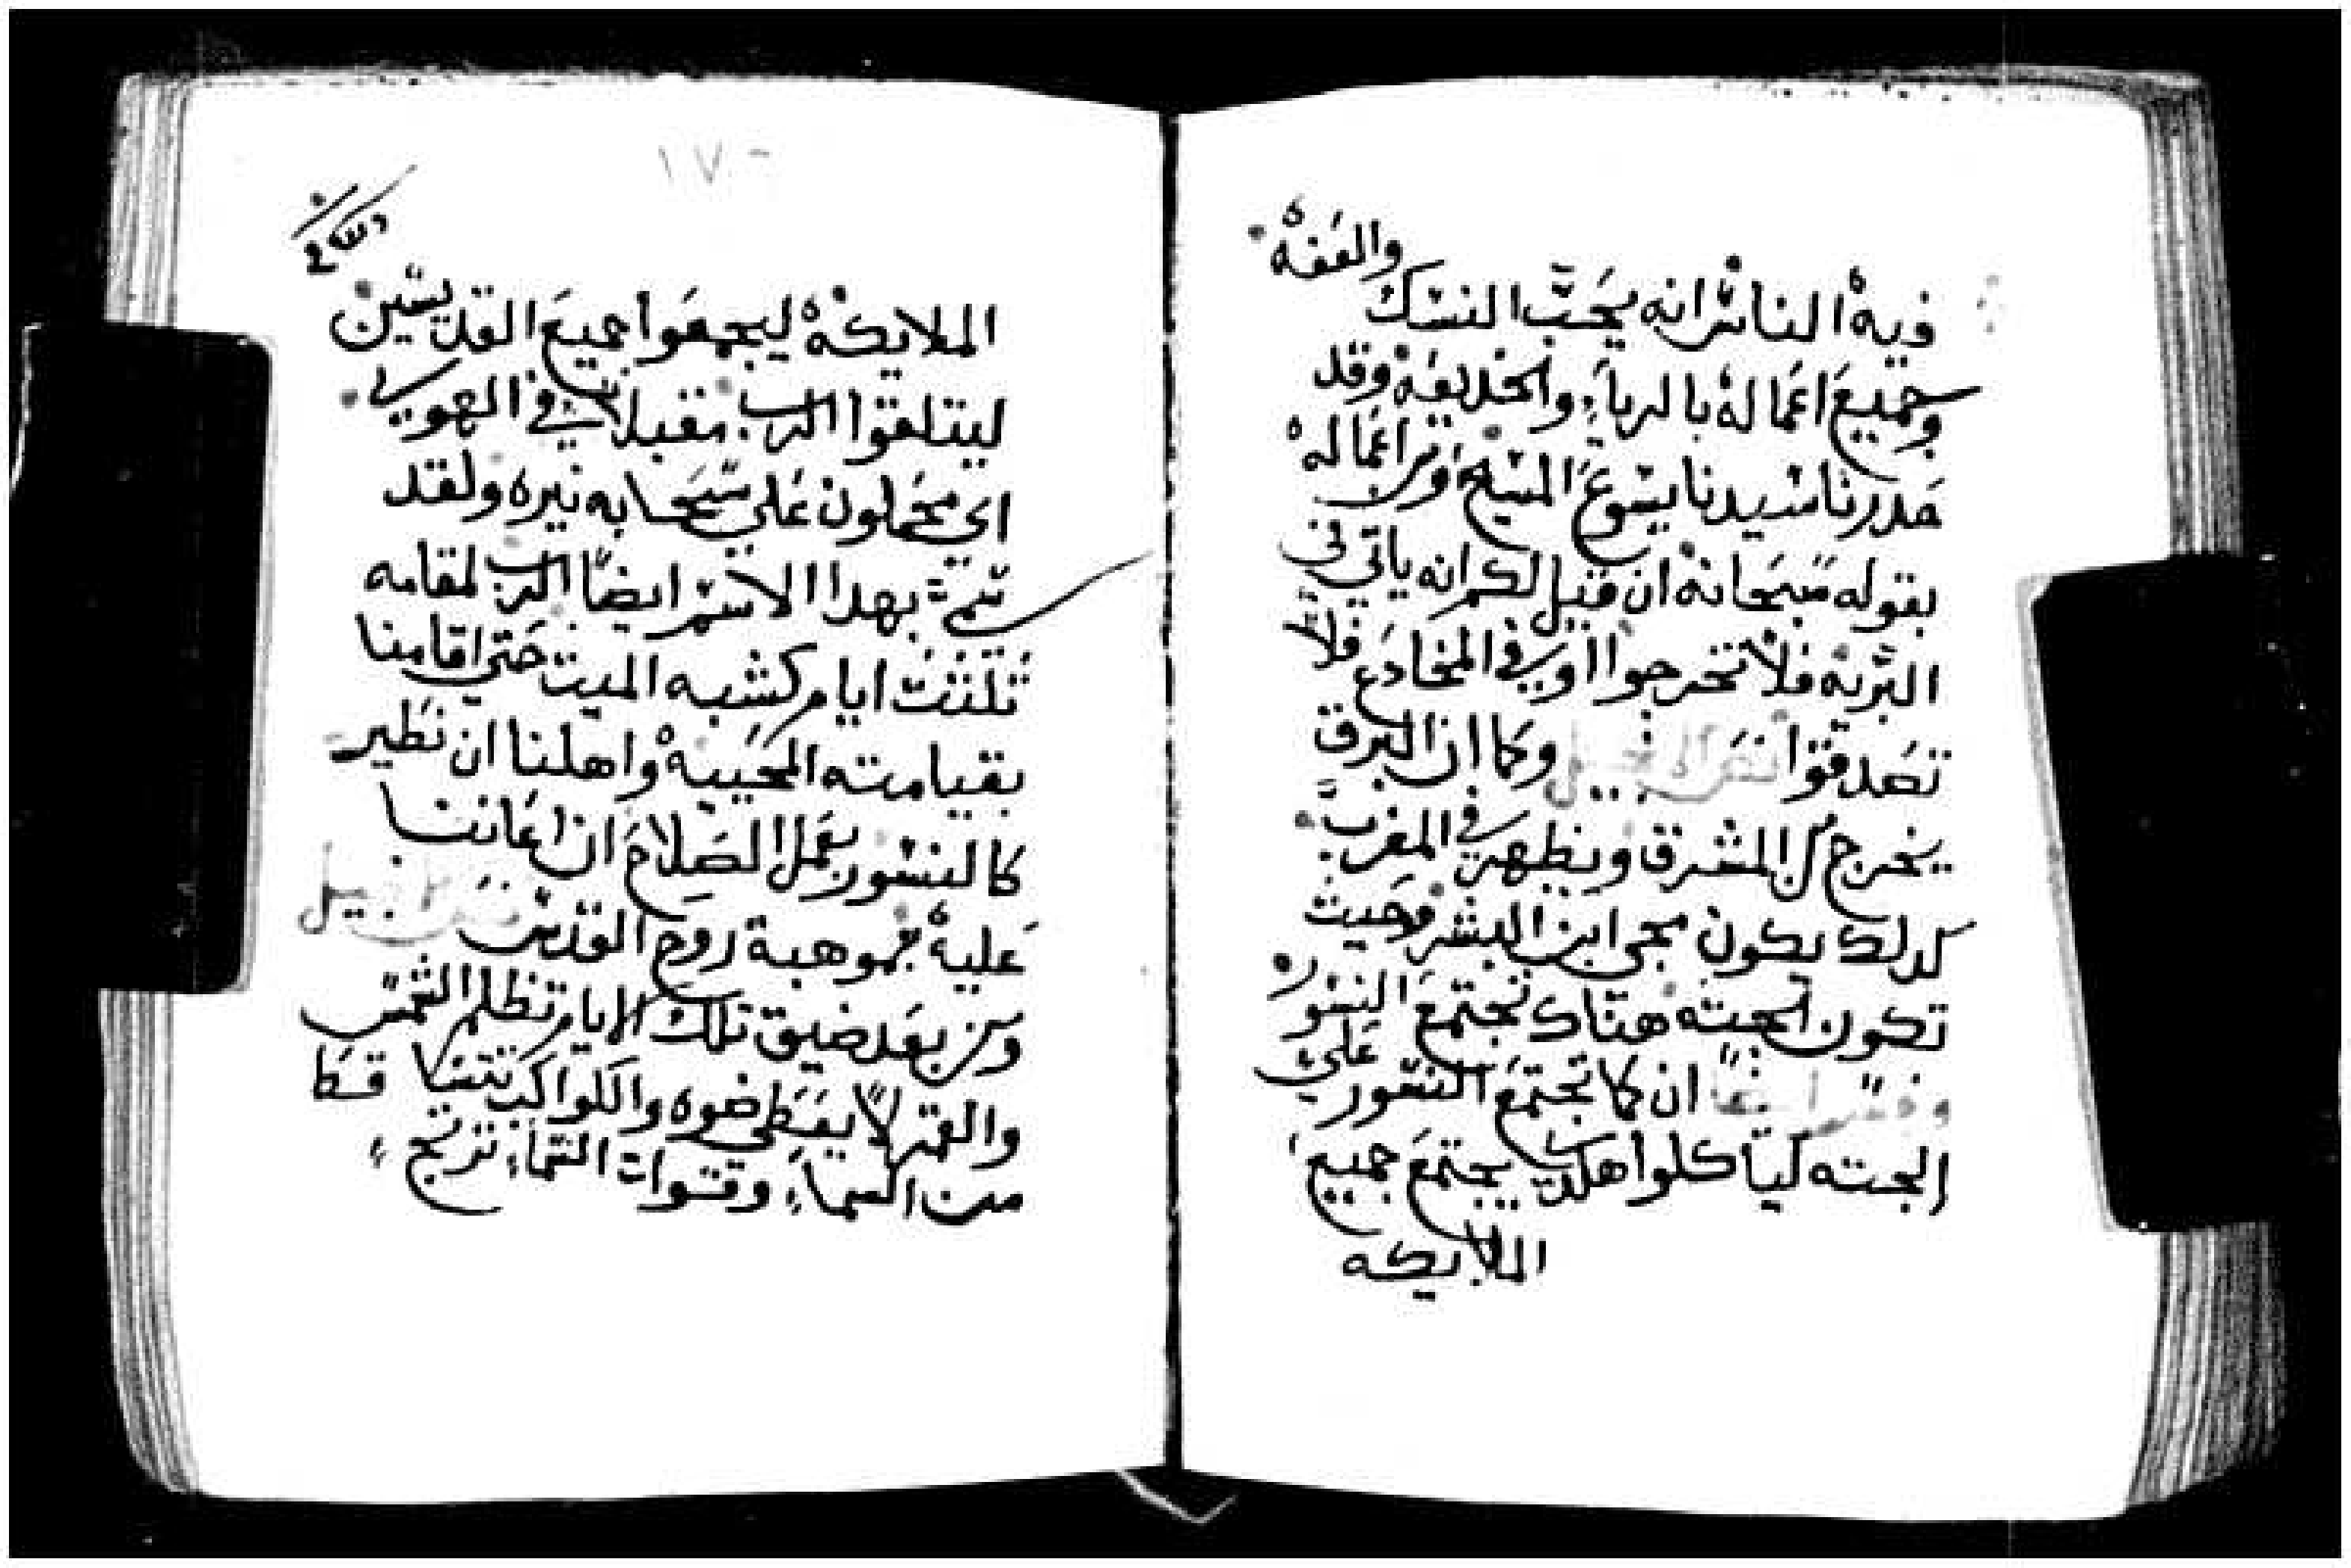 فيه الناس انه يحب النسك والعفه
وجميع اعماله بالرياء والخديعه وقد
حدرنا سيدنا يسوع المسيح من اعماله
بقوله سبحانه ان قيل لكم انه ياتي في
البريه فلا تخرجوا او في المخادع فلا
تصدقوا نص الانجيل وكما ان البرق
يخرج من المشرق ويظهر في المغرب
كدلك يكون مجي ابن البشر وحيث
تكون الجثه هناك تجتمع النسور
ان كما تجتمع النسور علي
الجته لياكلوا هكدي يجتمع جميع
الملايكه
١٧٠
الملايكه ليجمعوا جميع القديسين
ليتلقوا الرب مقبلا في الهوي
اي محملون علي سحابه نيره ولقد
سمي بهدا الاسم ايضا الرب لمقامه
تلتت ايام كشبه الميت حتي اقامنا
بقيامته المحييه واهلنا ان نطير
كالنسور بعمل الصلاح ان اعاننا
عليه بموهبة روح القدس الانجيل
ومن بعد ضيق تلك الايام تظلم الشمس
والقمر لا يعطي ضوه والكواكب تتساقط
من السماء وقوات السماء ترتج